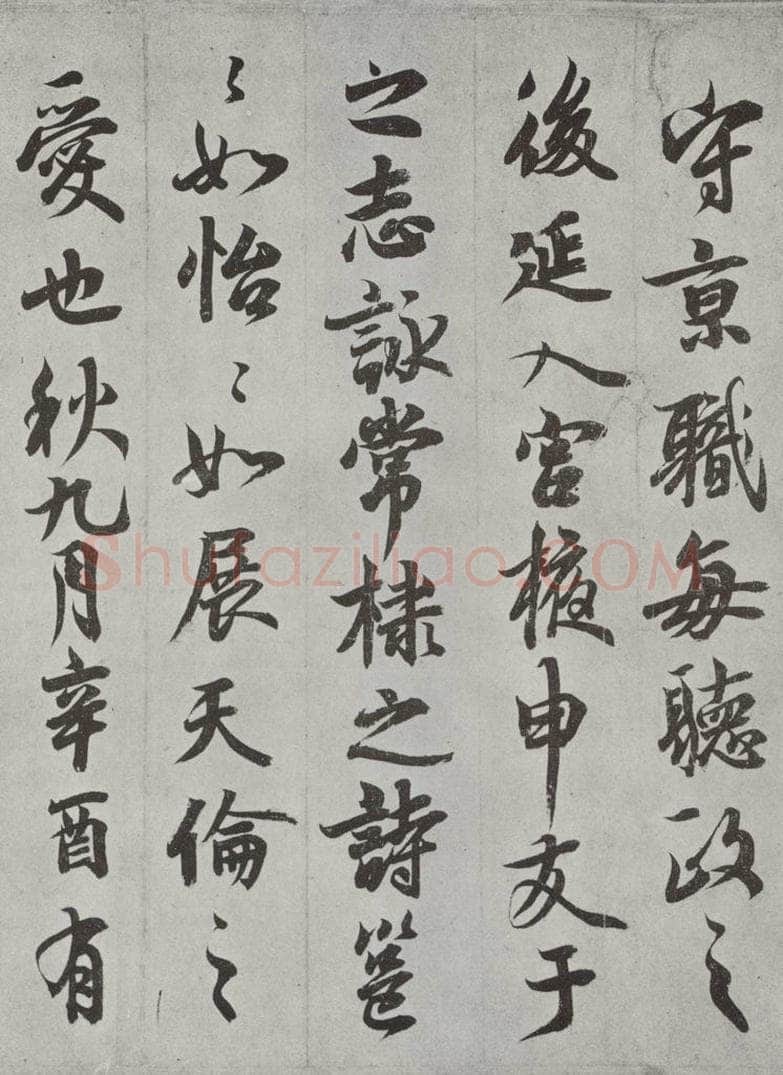 守京職每聽政之
後延入宮掖申友于
之志詠常棣之詩邕
〻如怡〻如展天倫之
愛也秋九月辛酉有
shufaziliao.COM